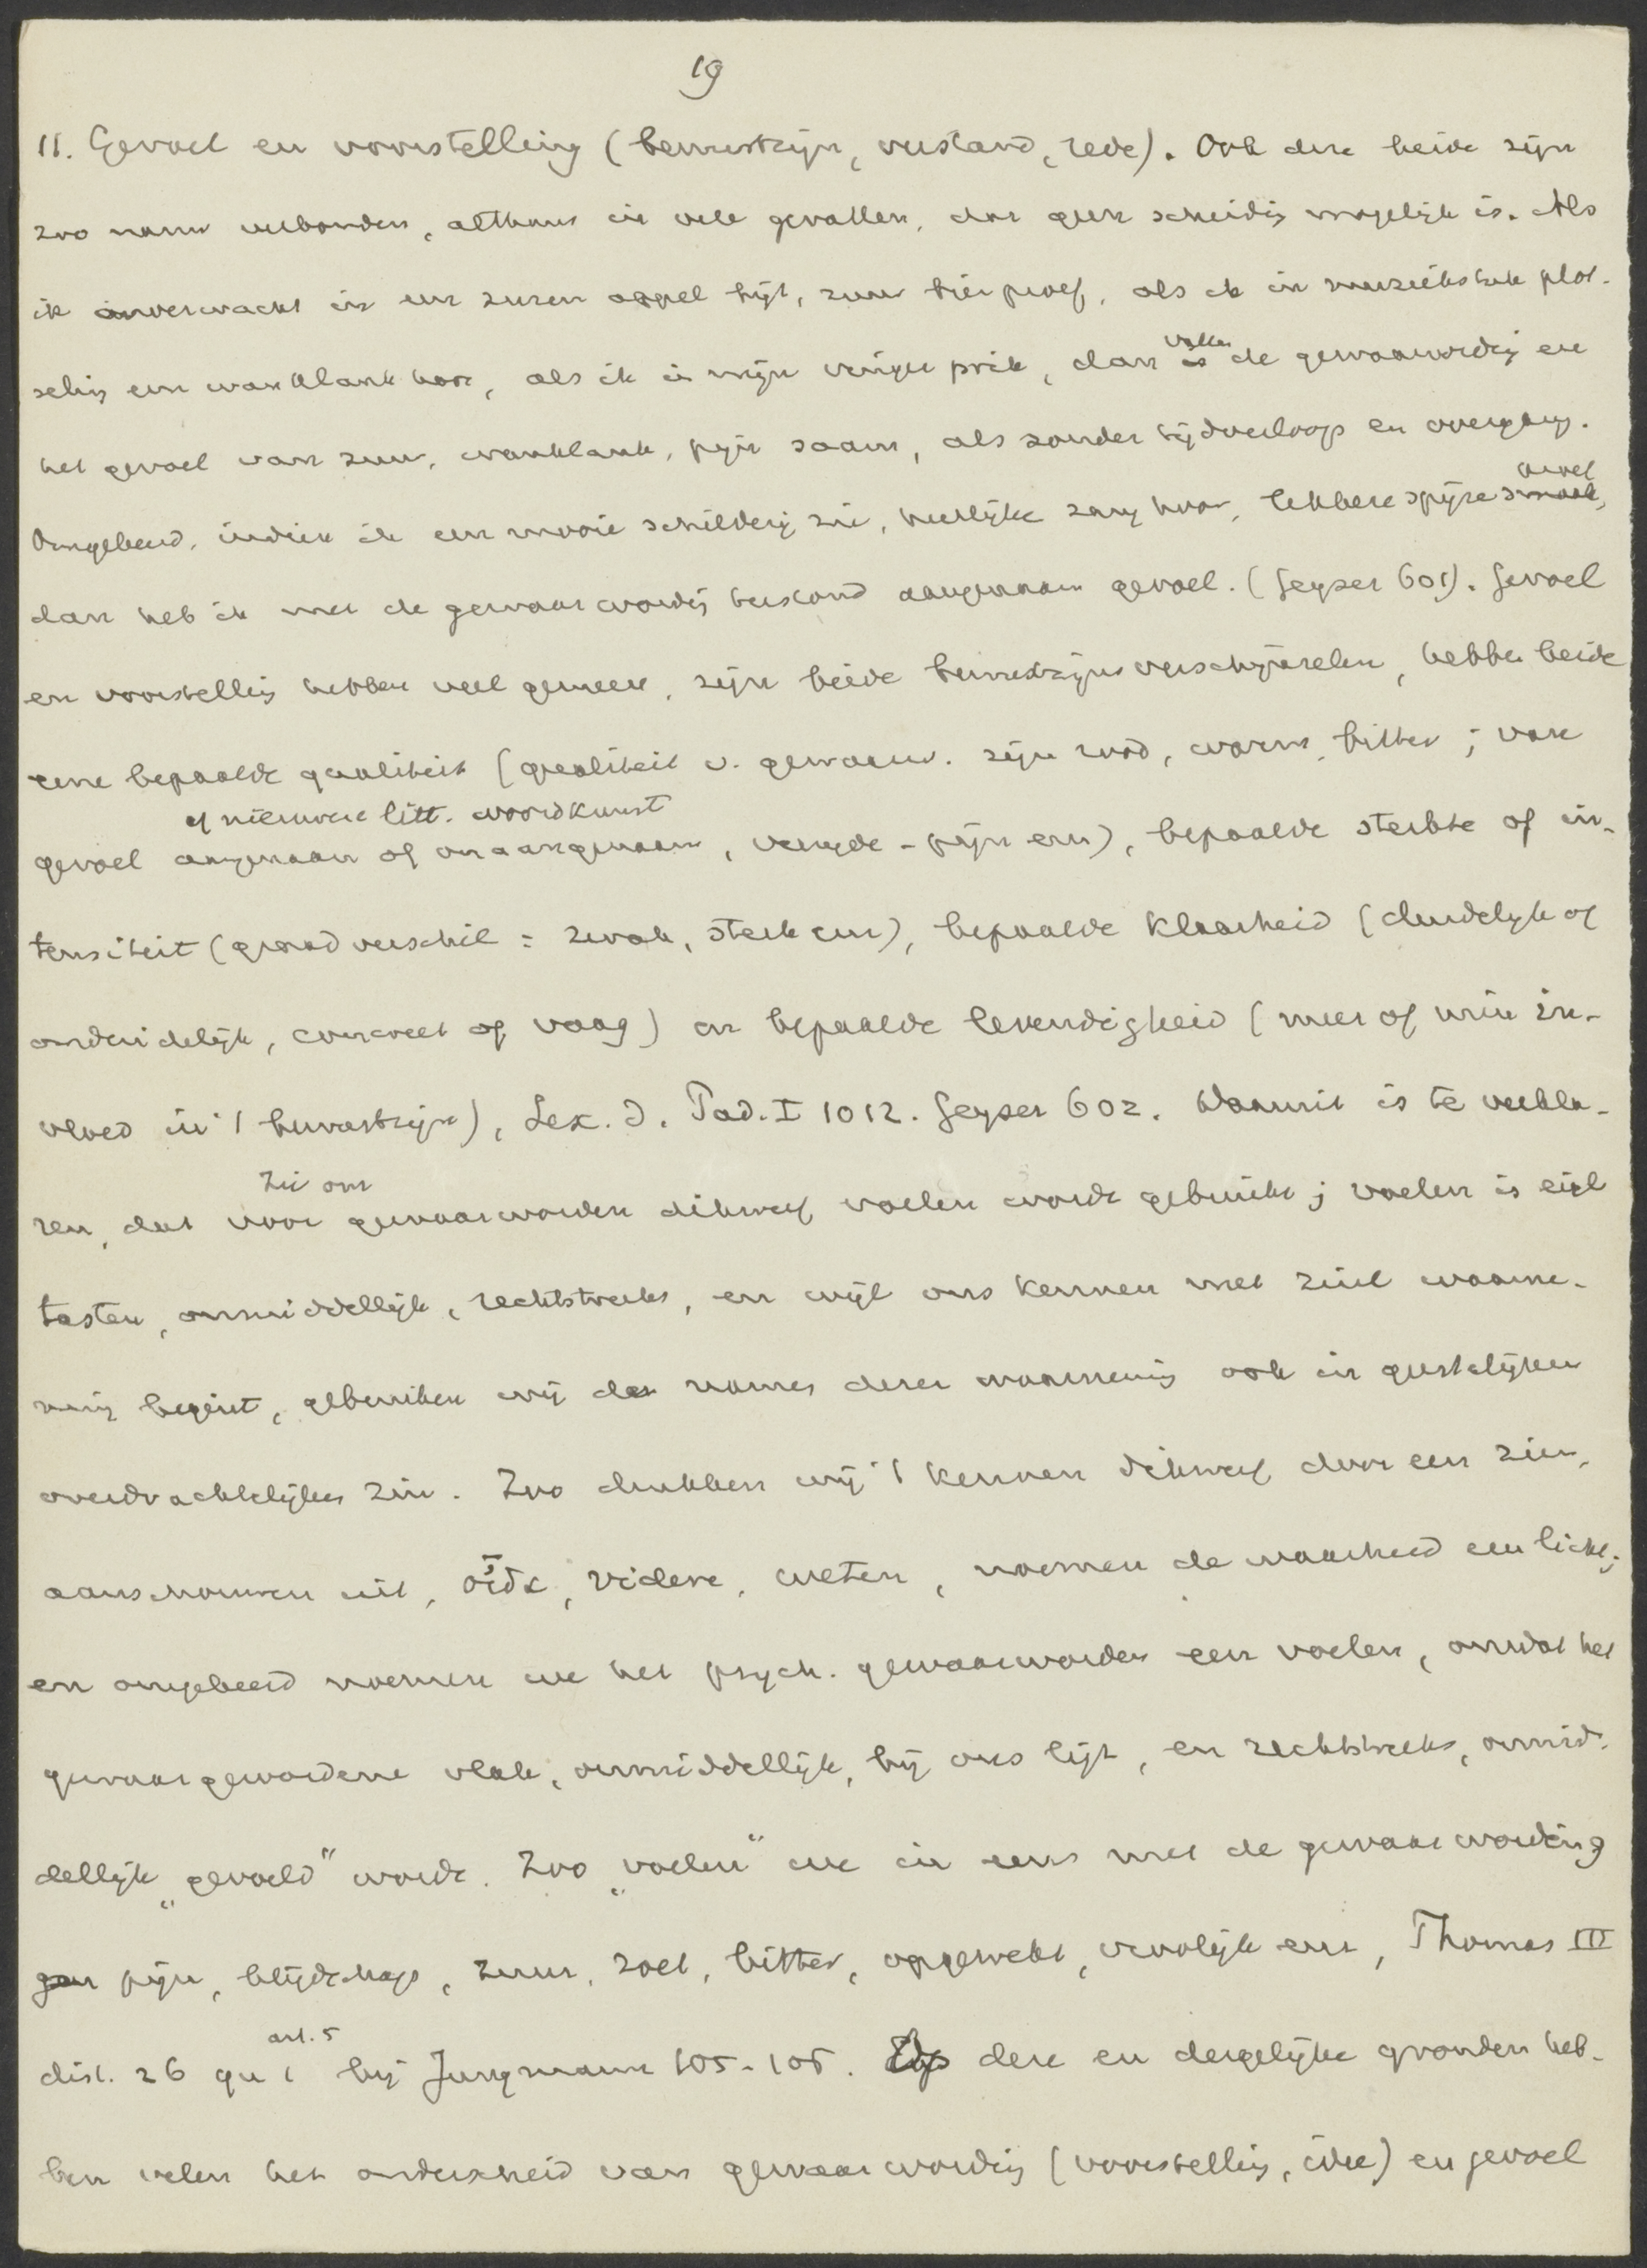 19
11. Gevoel en voorstelling (bewustzijn, verstand, rede). Ook deze beide zijn
zoo nauw verbonden, althans in vele gevallen, dat geen scheidig mogelijk is. Als
ik onverwacht in een zuren appel bijt, zuur bier proef, als ik in muziekstuk plot-
selig een wanklank hoor, als ik in mijn vinger prik, dan vallen de gewaarwordig en
het gevoel van zuur, wanklank, pijn saam, als zonder tijdverloop en overgang.
Omgekeerd, indien ik een mooie schilderij zie, heerlijke zang hoor, lekkere spijze proef,
dan heb ik met de gewaarwordig terstond aangenaam gevoel. (Geyser 601). Gevoel
en voorstellig hebben veel gemeen, zijn beide bewustzijnsverschijnselen, hebben beide
eene bepaalde qualiteit (qualiteit v. gewaarw. zijn rood, warm, bitter; van
of nieuwere litt. woordkunst
gevoel aangenaam of onaangenaam, vreugde - pijn enz), bepaalde sterkte of in-
tensiteit (graadverschil = zwak, sterk enz), bepaalde klaarheid (duidelijk of
onduidelijk, concreet of vaag) en bepaalde levendigheid (meer of min in-
vloed in 't bewustzijn), Lex. d. Päd. I 1012. Geyser 602. Daaruit is te verkla-
Zie om
ren, dat voor gewaarworden dikwerf voelen wordt gebruikt; voelen is eigl
tasten, onmiddellijk, rechtstreeks, en wijl ons kennen met zinl waarne-
ming begint, gebruiken wij de namen dezer waarnemig ook in geestelijken
overdrachtelijken zin. Zoo drukken wij 't kennen dikwerf door een zien,
aanschouwen uit, οἶδα, videre, weten, noemen de waarheid een licht;
en omgekeerd noemen we het psych. gewaarworden een voelen, omdat het
gewaargewordene vlak, onmiddellijk, bij ons ligt, en rechtstreeks, onmid-
dellijk „gevoeld” wordt. Zoo „voelen” we in eens met de gewaarwording
pijn, blijdschap, zuur, zoet, bitter, opgewekt, vroolijk enz, Thomas III
art. 5
dist. 26 qu 1 bij Jungmann 105-106. Op deze en dergelijke gronden heb-
ben velen het onderscheid van gewaarwordig (voorstellig, idee) en gevoel